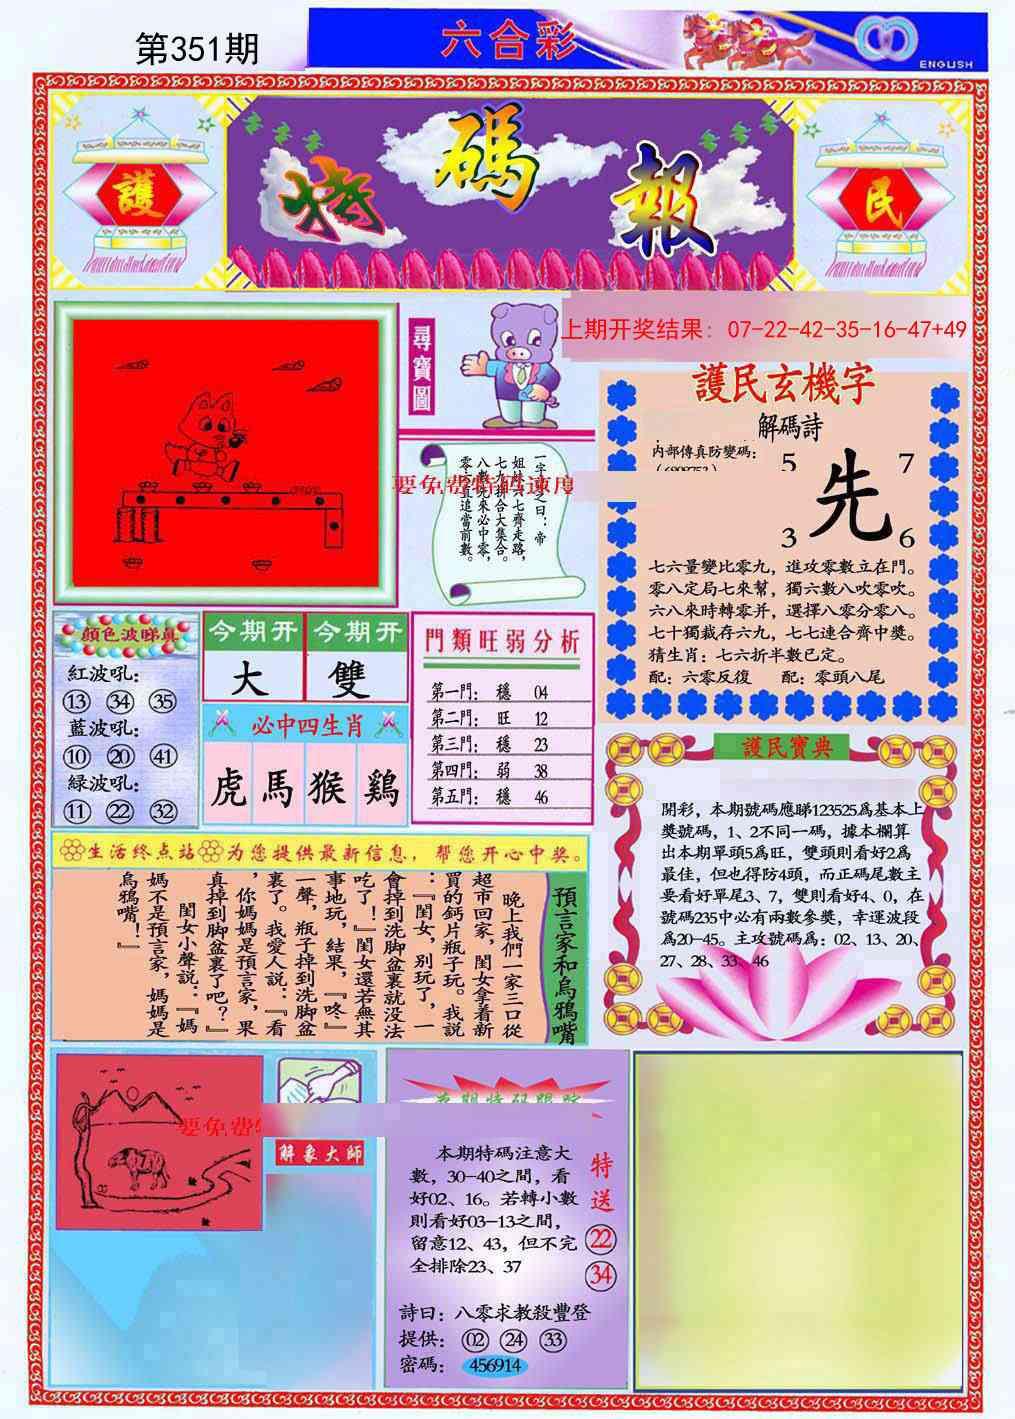 第351期
六合彩
ENGLISH
護
特碼報
民
尋寶圖
上期开奖结果：07-22-42-35-16-47+49
護民玄機字
解碼詩
内部傳真防變碼：
5
7
先
3
6
七六量變比零九，進攻零數立在門。
零八定局七來幫，獨六數八吹零吹。
六八來時轉零并，選擇八零分零八。
七十獨裁存六九，七七連合齊中獎。
猜生肖：七六折半數已定。
配：六零反復　配：零頭八尾
顏色波睇真
紅波吼：
13 34 35
藍波吼：
10 20 41
綠波吼：
11 22 32
今期开 今期开
大 雙
必中四生肖
虎 馬 猴 鷄
門類旺弱分析
第一門： 穩 04
第二門： 旺 12
第三門： 穩 23
第四門： 弱 38
第五門： 穩 46
護民寶典
開彩，本期號碼應睇123525爲基本上
獎號碼，1、2不同一碼，據本欄算
出本期單頭5爲旺，雙頭則看好2爲
最佳，但也得防4頭，而正碼尾數主
要看好單尾3、7，雙則看好4、0，在
號碼235中必有兩數參獎，幸運波段
爲20-45。主攻號碼爲：02、13、20、
27、28、33、46
生活终点站 为您提供最新信息，帮您开心中奖。
預言家和烏鴉嘴
晚上我們一家三口從
超市回家，閨女拿着新
買的鈣片瓶子玩。我說
：『閨女，别玩了，一
會掉到洗脚盆裏就没法
吃了！』閨女還若無其
事地玩，結果，『咚』
一聲，瓶子掉到洗脚盆
裏了。我愛人說：『看
，你媽媽是預言家，果
真掉到脚盆裏了吧？』
閨女小聲說：『媽
媽不是預言家，媽媽是
烏鴉嘴！』
要免费
解象大師
本期特碼注意大
數，30-40之間，看
好02、16。若轉小數
則看好03-13之間，
留意12、43，但不完
全排除23、37
特送
22
34
詩曰：八零求教殺豐登
提供： 02 24 33
密碼： 456914